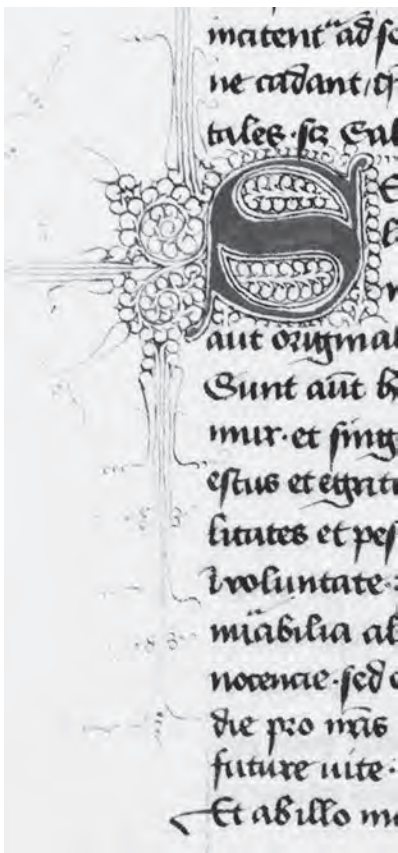 incitent ad
ne cadant
tales· scz
S
aut original
Sunt aūt
mur· et sing
estus et egritu
litates et pes
voluntate·
mīabilia ab
nocencie· sed
die pro nr̄is
future uite·
Et ab illo mo